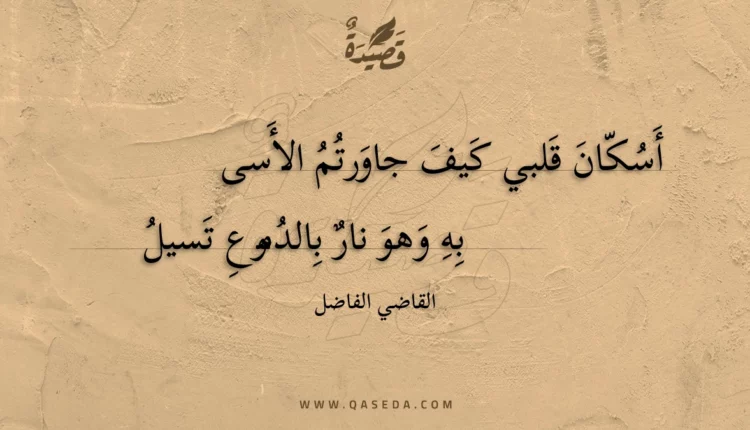 قَصِيْدَةٌ
أَسُكّانَ قَلبي كَيفَ جاوَرتُمُ الأَسى
بِهِ وَهوَ نارٌ بِالدُموعِ تَسيلُ
القاضي الفاضل
WWW.QASEDA.COM